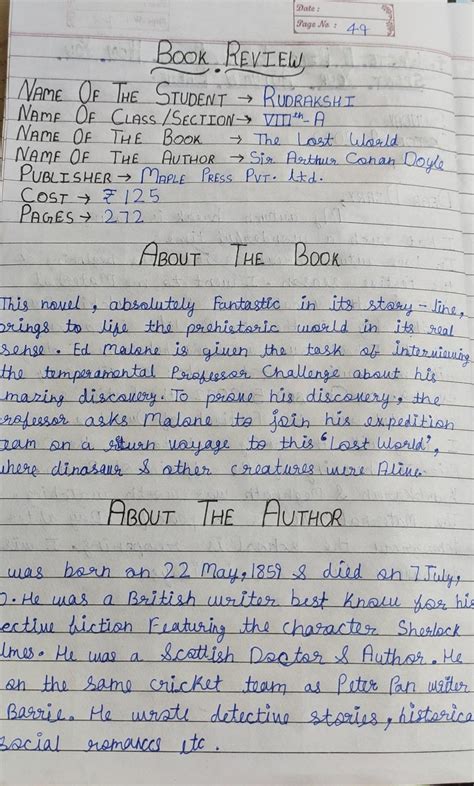 Date :
Page No. : 49
BOOK REVIEW
NAME OF THE STUDENT → RUDRAKSHI
NAME OF CLASS/SECTION → VIIIth-A
NAME OF THE BOOK → The Lost World
NAME OF THE AUTHOR → Sir Arthur Conan Doyle
PUBLISHER → MAPLE PRESS PVT. Ltd.
COST → ₹125
PAGES → 272
ABOUT THE BOOK
This novel, absolutely Fantastic in its story-line,
brings to life the prehistoric world in its real
sense. Ed Malone is given the task of Interviewing
the temperamental Professor Challenge about his
mazing discovery. To prove his discovery, the
rofessor asks Malone to join his expedition
eam on a return voyage to this "Lost World",
where dinasaur & other creatures were Alive.
ABOUT THE AUTHOR
was born on 22 May, 1859 & died on 7 July,
0. He was a British writer best Know for his
ective fiction Featuring the character Sherlock
lmes. He was a Scottish Doctor & Author. He
on the same cricket team as Peter Pan writer
Barrie. He wrote detective stories, historica
social romances etc.